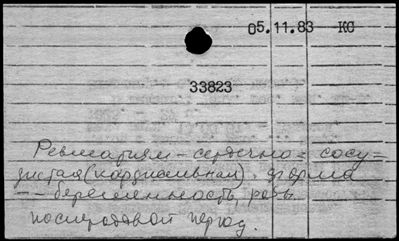 05.11.83 КС
33823
Ревматизм – сердечно = сосу =
дистая (кардиальная) форма
–– беременность, роды
послеродовой период.